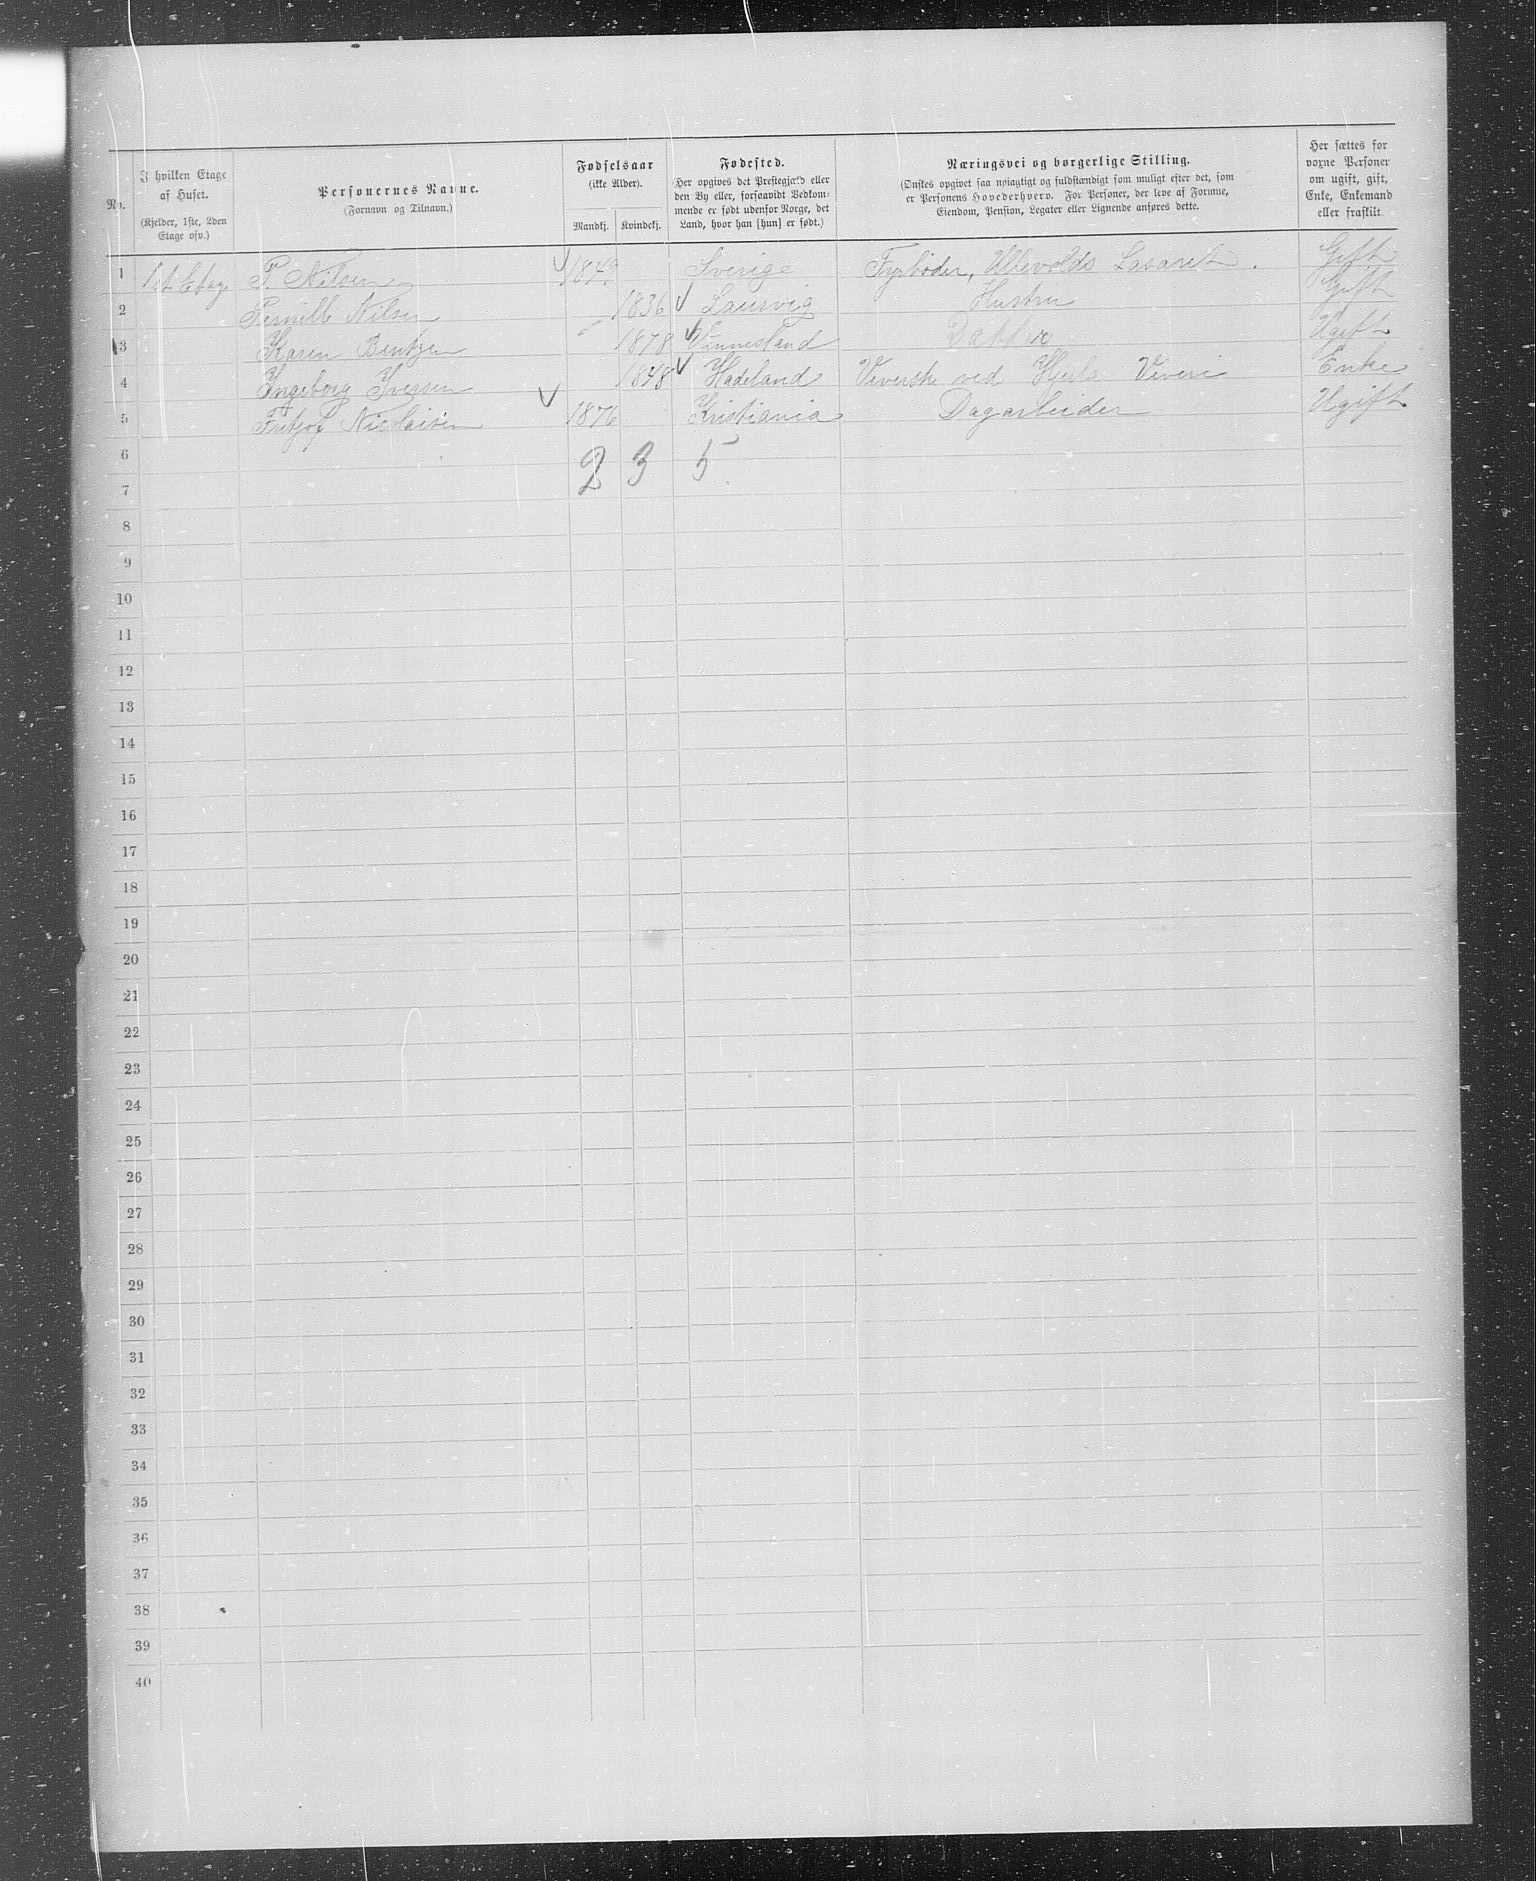 No.
I hvilken Etage
af Huset.
(Kjelder, 1ste, 2den
Etage osv.)
Personernes Navne.
(Fornavn og Tilnavn.)
Fødselsaar
(ikke Alder).
Mandkj. Kvindekj.
Fødested.
(Her opgives det Prestegjæld eller
den By eller, forsaavidt Vedkom-
mende er født udenfor Norge, det
Land, hvor han [hun] er født.)
Næringsvei og borgerlige Stilling.
(Ønskes opgivet saa nøiagtigt og fuldstændigt som muligt efter det, som
er Personens Hovederhverv. For Personer, der leve af Formue,
Eiendom, Pension, Legater eller Lignende anføres dette.
Her sættes for
voxne Personer
om ugift, gift,
Enke, Enkemand
eller fraskilt
1 1st Etag P. Nilsen 1849 Sverige Fyrbøder, Ullevolds Lasaret. Gift
2 Pernille Nilsen 1836 Laurvig Hustru Gift
3 Karen Bentzen 1878 Vinnesland Ugift
4 Ingeborg Iversen 1848 Hadeland Væverske ved Hjula Væveri Enke
5 Fritjof Nicolaisen 1876 Kristiania Dagarbeider Ugift
6 2 3 5
7
8
9
10
11
12
13
14
15
16
17
18
19
20
21
22
23
24
25
26
27
28
29
30
31
32
33
34
35
36
37
38
39
40